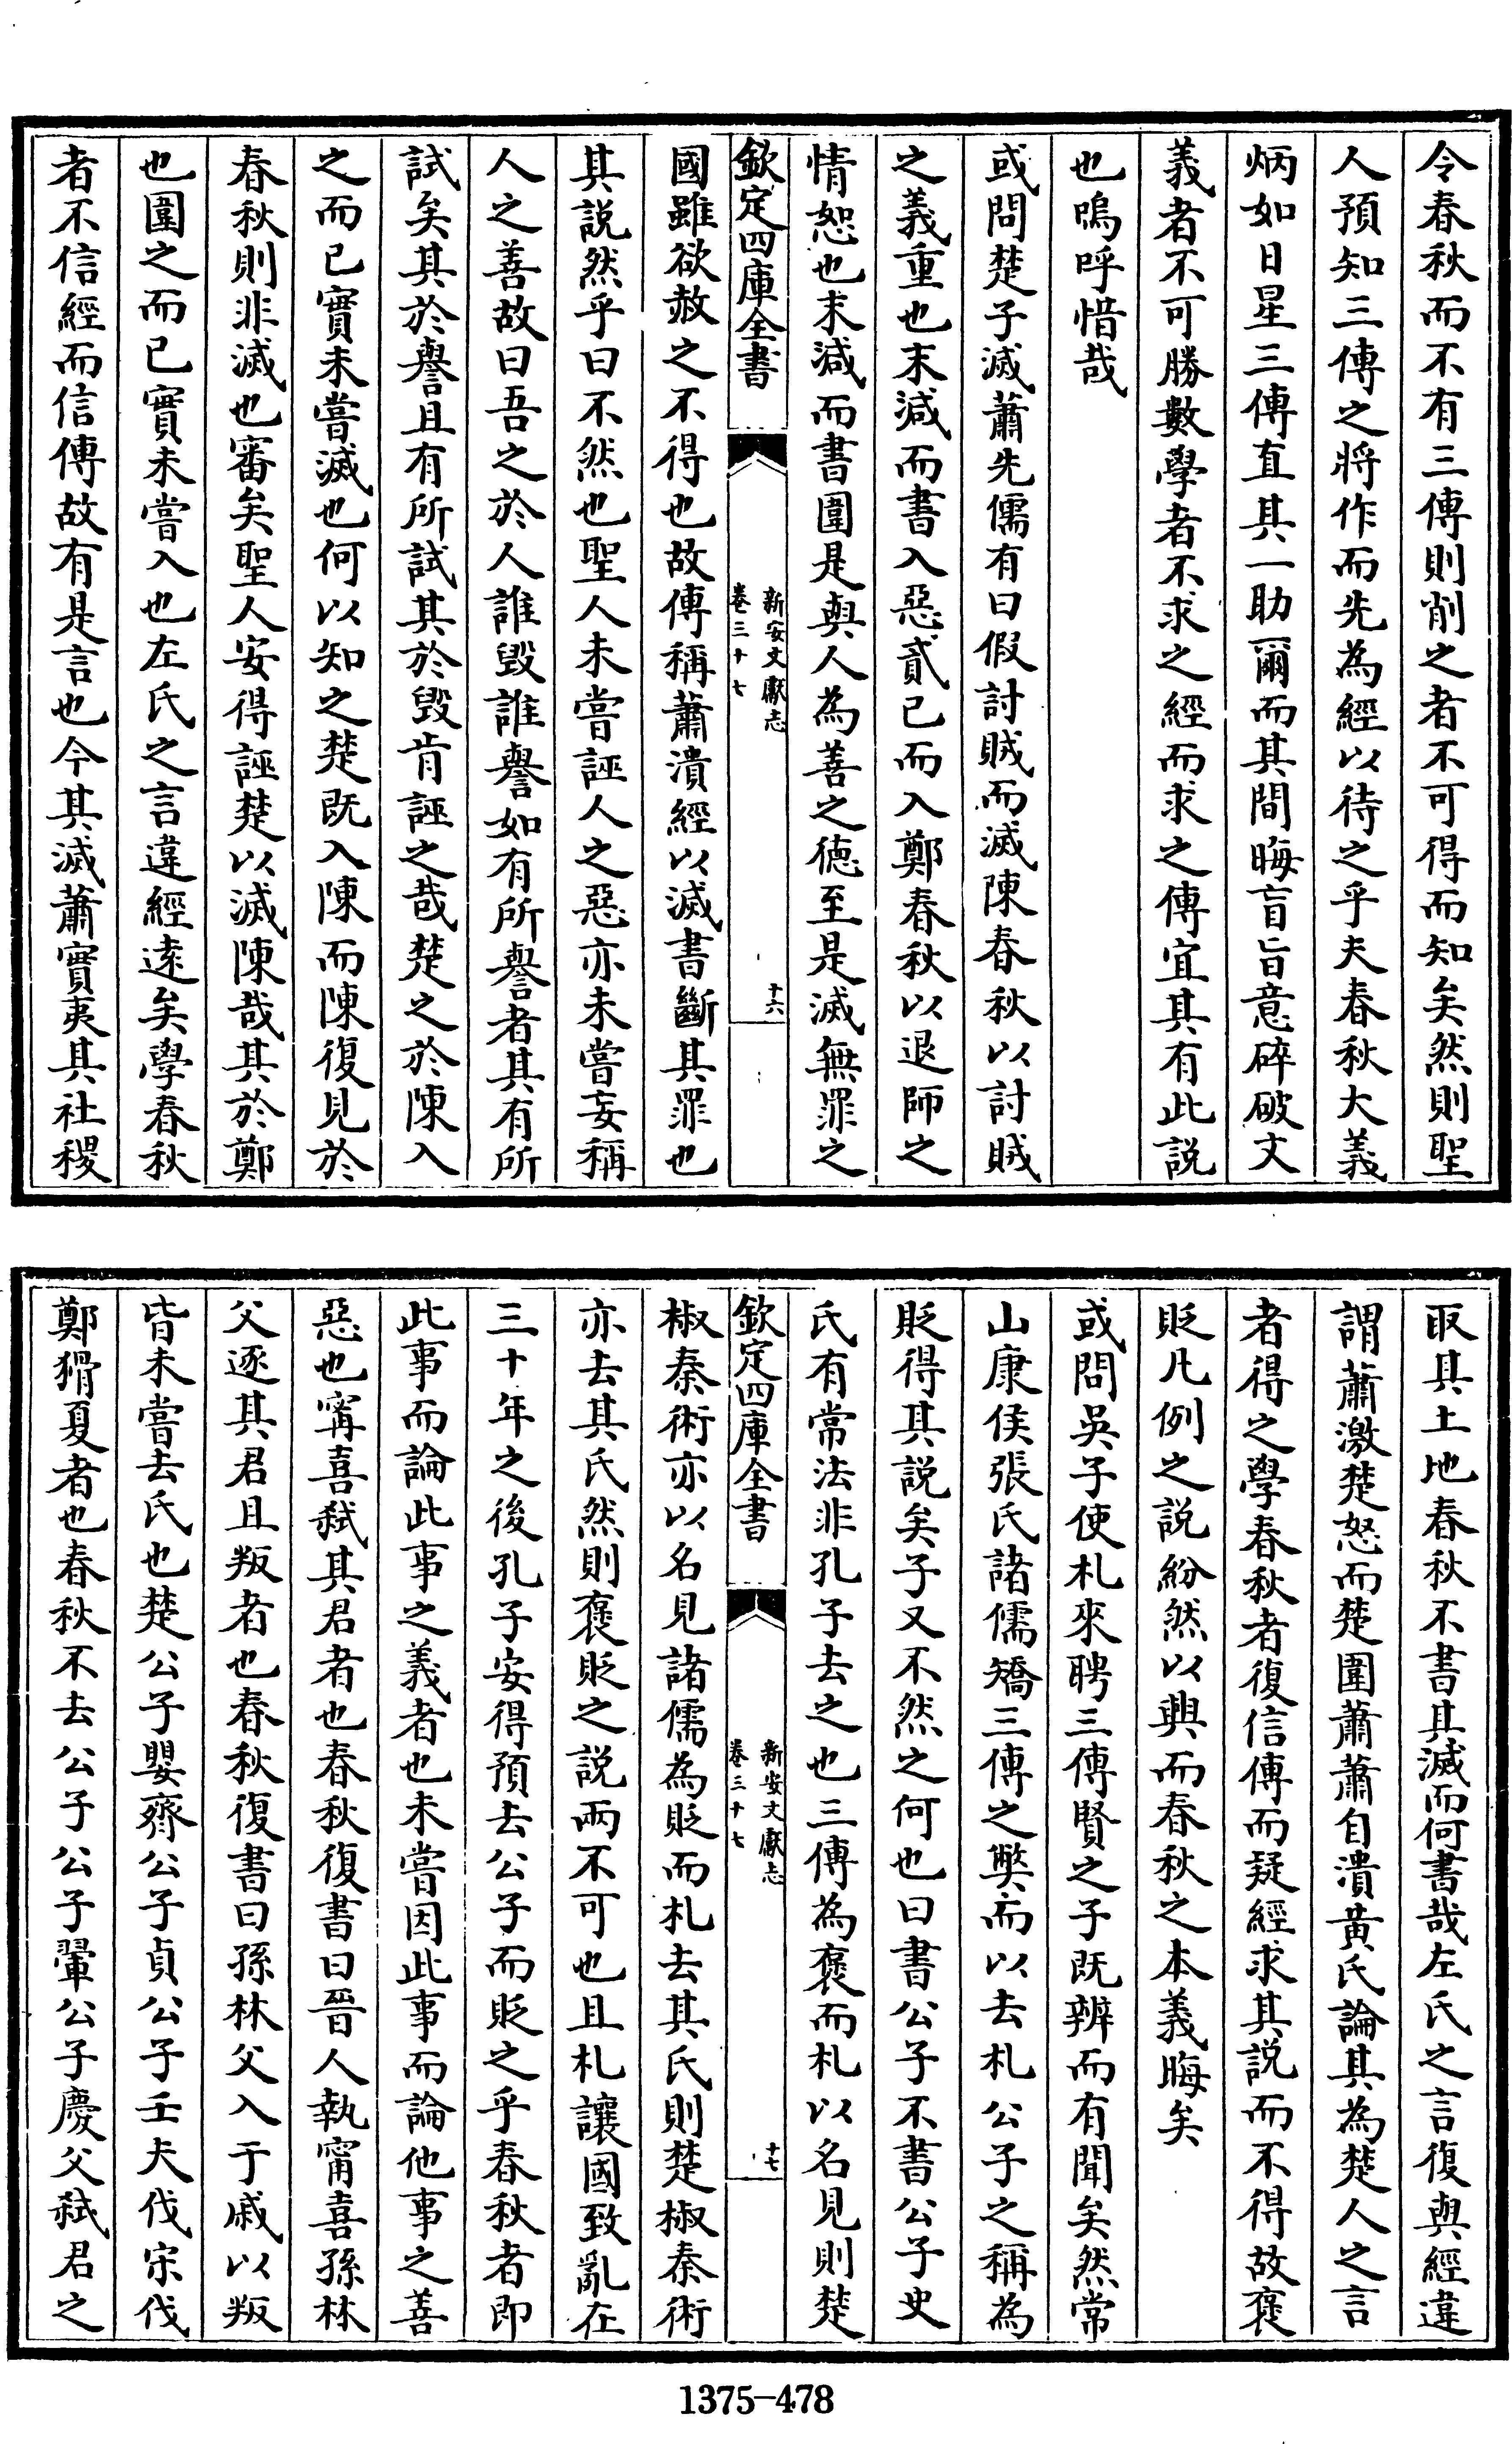 令春秋而不有三傳則削之者不可得而知矣然則聖
人預知三傳之將作而先為經以待之乎夫春秋大義
炳如日星三傳直其一助爾而其間晦盲旨意碎破文
義者不可勝數學者不求之經而求之傳宜其有此說
也嗚呼惜哉
或問楚子滅蕭先儒有曰假討賊而滅陳春秋以討賊
之義重也末減而書入惡貳己而入鄭春秋以退師之
情恕也末減而書圍是與人為善之德至是滅無罪之
欽定四庫全書
新安文獻志
卷三十七
十六
國雖欲赦之不得也故傳稱蕭潰經以滅書斷其罪也
其說然乎曰不然也聖人未嘗誣人之惡亦未嘗妄稱
人之善故曰吾之於人誰毀誰譽如有所譽者其有所
試矣其於譽且有所試其於毀肯誣之哉楚之於陳入
之而已實未嘗滅也何以知之楚既入陳而陳復見於
春秋則非滅也審矣聖人安得誣楚以滅陳哉其於鄭
也圍之而已實未嘗入也左氏之言違經遠矣學春秋
者不信經而信傳故有是言也今其滅蕭實夷其社稷
取其土地春秋不書其滅而何書哉左氏之言復與經違
謂蕭激楚怒而楚圍蕭蕭自潰黃氏論其為楚人之言
者得之學春秋者復信傳而疑經求其說而不得故褒
貶凡例之說紛然以興而春秋之本義晦矣
或問吳子使札來聘三傳賢之子既辨而有聞矣然常
山康侯張氏諸儒矯三傳之弊而以去札公子之稱為
貶得其說矣子又不然之何也曰書公子不書公子史
氏有常法非孔子去之也三傳為褒而札以名見則楚
欽定四庫全書
新安文獻志
卷三十七
十七
椒秦術亦以名見諸儒為貶而札去其氏則楚椒秦術
亦去其氏然則褒貶之說兩不可也且札讓國致亂在
三十年之後孔子安得預去公子而貶之乎春秋者即
此事而論此事之義者也未嘗因此事而論他事之善
惡也甯喜弒其君者也春秋復書曰晉人執甯喜孫林
父逐其君且叛者也春秋復書曰孫林父入于戚以叛
皆未嘗去氏也楚公子嬰齊公子貞公子壬夫伐宋伐
鄭猾夏者也春秋不去公子公子翬公子慶父弒君之
1375-478